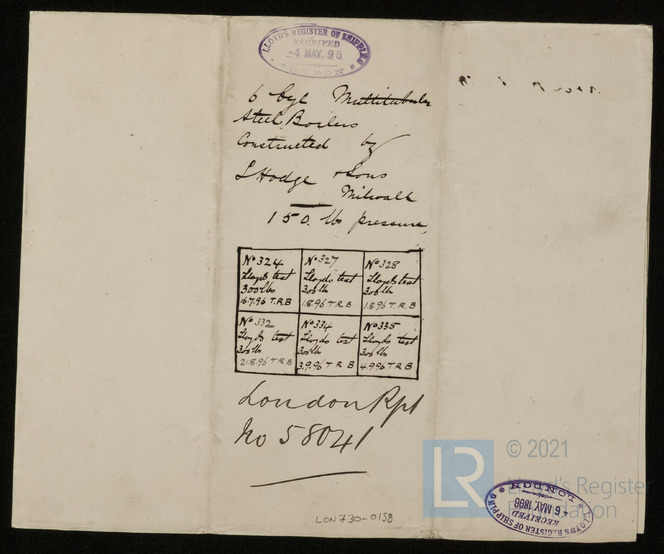 LLOYD'S REGISTER OF SHIPPING
RECEIVED
4 MAY. 96
LONDON
6 Cyl Multitubular
Steel Boilers
Constructed by
S Hodge & Sons
Milwall
150. lb pressure
No 324
Lloyds test
300 lbs
16.7.96 T.R.B
No 327
Lloyds test
300 lb
1.8.96 T.R.B
No 328
Lloyds test
300 lb
1.8.96 T.R.B
No 332
Lloyds test
300 lb
21.8.96 T R B
No 334
Lloyds test
300 lb
3.9.96 T R B
No 335
Lloyds test
300 lb
4.9.96 T R B
London Rpt
No 58041
LON730-0158
LR © 2021
Lloyd's Register
Foundation
LLOYD'S REGISTER OF SHIPPING
RECEIVED
6 MAY 1896
LONDON